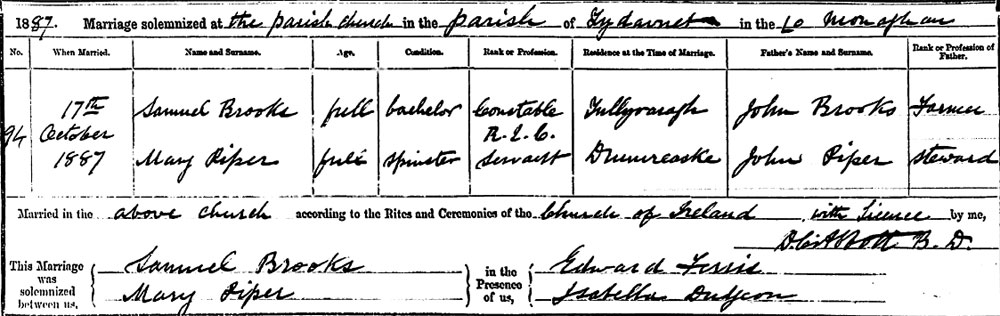 1887. Marriage solemnized at the parish church in the parish of Tydavnet in the Co Monaghan
No. When Married. Name and Surname. Age. Condition. Rank or Profession. Residence at the Time of Marriage. Father's Name and Surname. Rank or Profession of Father.
94 17th October 1887
Samuel Brooks full bachelor Constable R.I.C. Tullyvaragh John Brooks Farmer
Mary Piper full spinster servant Drumreaske John Piper steward
Married in the above church according to the Rites and Ceremonies of the Church of Ireland with licence by me,
Abbott B. D.
This Marriage was solemnized between us, Samuel Brooks in the Presence of us, Edward Ferris
Mary Piper Isabella Dudgeon